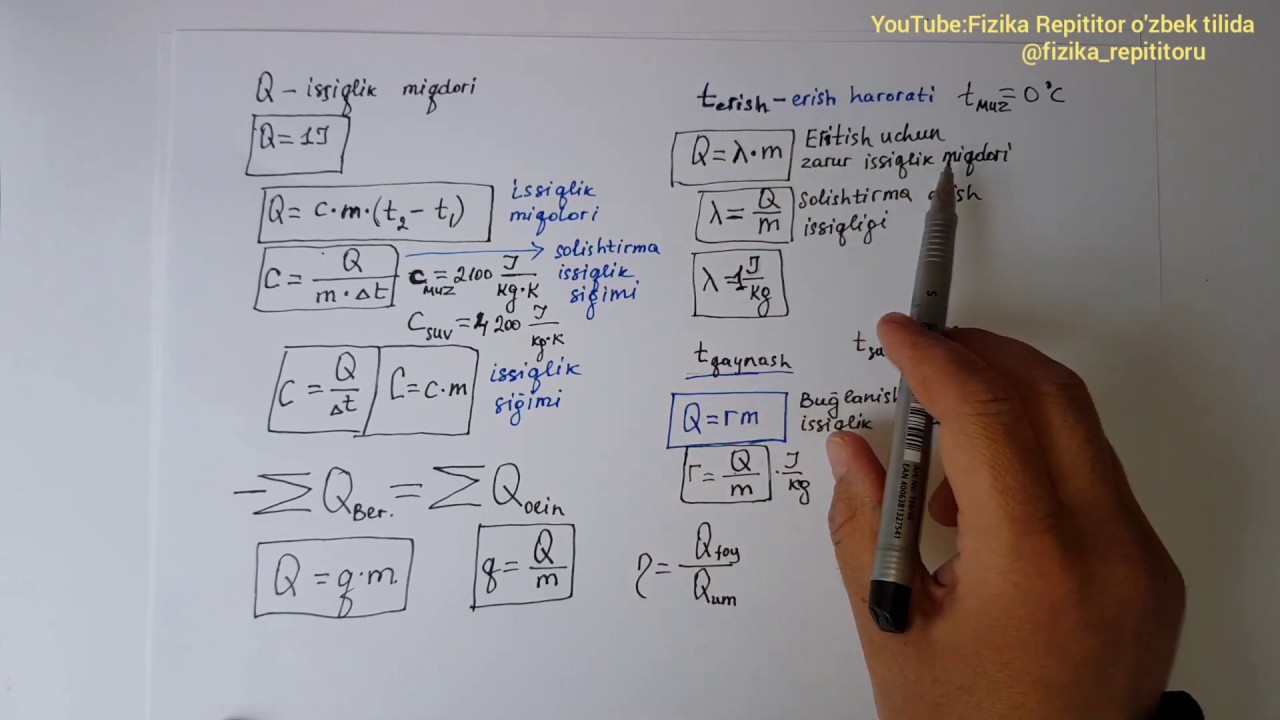 YouTube:Fizika Repititor o'zbek tilida
@fizika_repititoru
Q – issiqlik miqdori
Q = 1J
Q = c·m·(t₂ – t₁)
issiqlik
miqdori
C = Q / m·Δt
solishtirma
issiqlik
siğimi
C muz = 2100 J / kg·K
C suv = 4200 J / kg·K
C = Q / Δt
C = c·m
issiqlik
siğimi
–∑Q Ber. = ∑Q olin
Q = q·m
q = Q / m
η = Q foy / Q um
t erish – erish harorati t muz = 0°C
Q = λ·m
Eritish uchun
zarur issiqlik miqdori
λ = Q / m
Solishtirma
issiqligi
λ = 1 J / kg
t qaynash
Q = rm
Buğlanish
issiqlik
r = Q / m · J / kg
S
EAN 4006381327541